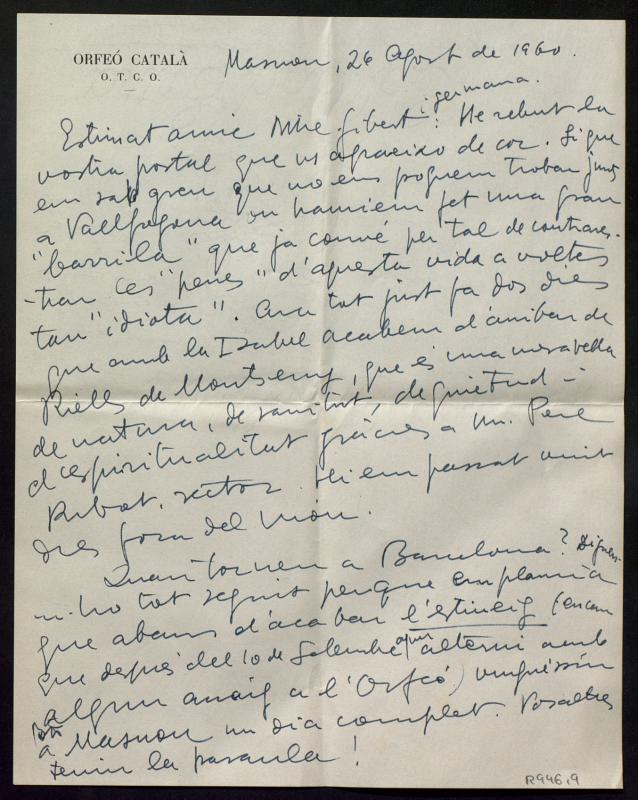 ORFEÓ CATALÀ
O. T. C. O.
Masnou, 26 Agost de 1960.
Estimat amic Mtre. Gibert i germana. : He rebut la
vostra postal que us agraeixo de cor. Si que
em sap greu que no ens poguem trobar junts
a Vallfogona on hauriem fet una gran
"barrila" que ja convé per tal de contrares-
-tar les "penes" d'aquesta vida a voltes
tan "idiota". Ara tot just fa dos dies
que amb la Isabel acabem d'arribar de
Riells de Montseny, que és una meravella
de natura, de sanitat, de quietud i
d'espiritualitat gràcies a Mn. Pere
Ribot, rector. Hi em passat vuit
dies fora del món.
Quan tornen a Barcelona? Diguen-
m-ho tot seguit perque em plauria
que abans d'acabar l'estiueig (encara
que després del 10 de Setembre alterni amb
algun assaig a l'Orfeó) vinguéssin
a Masnou un dia complet. Vosaltres
tenin la paraula!
R946,9